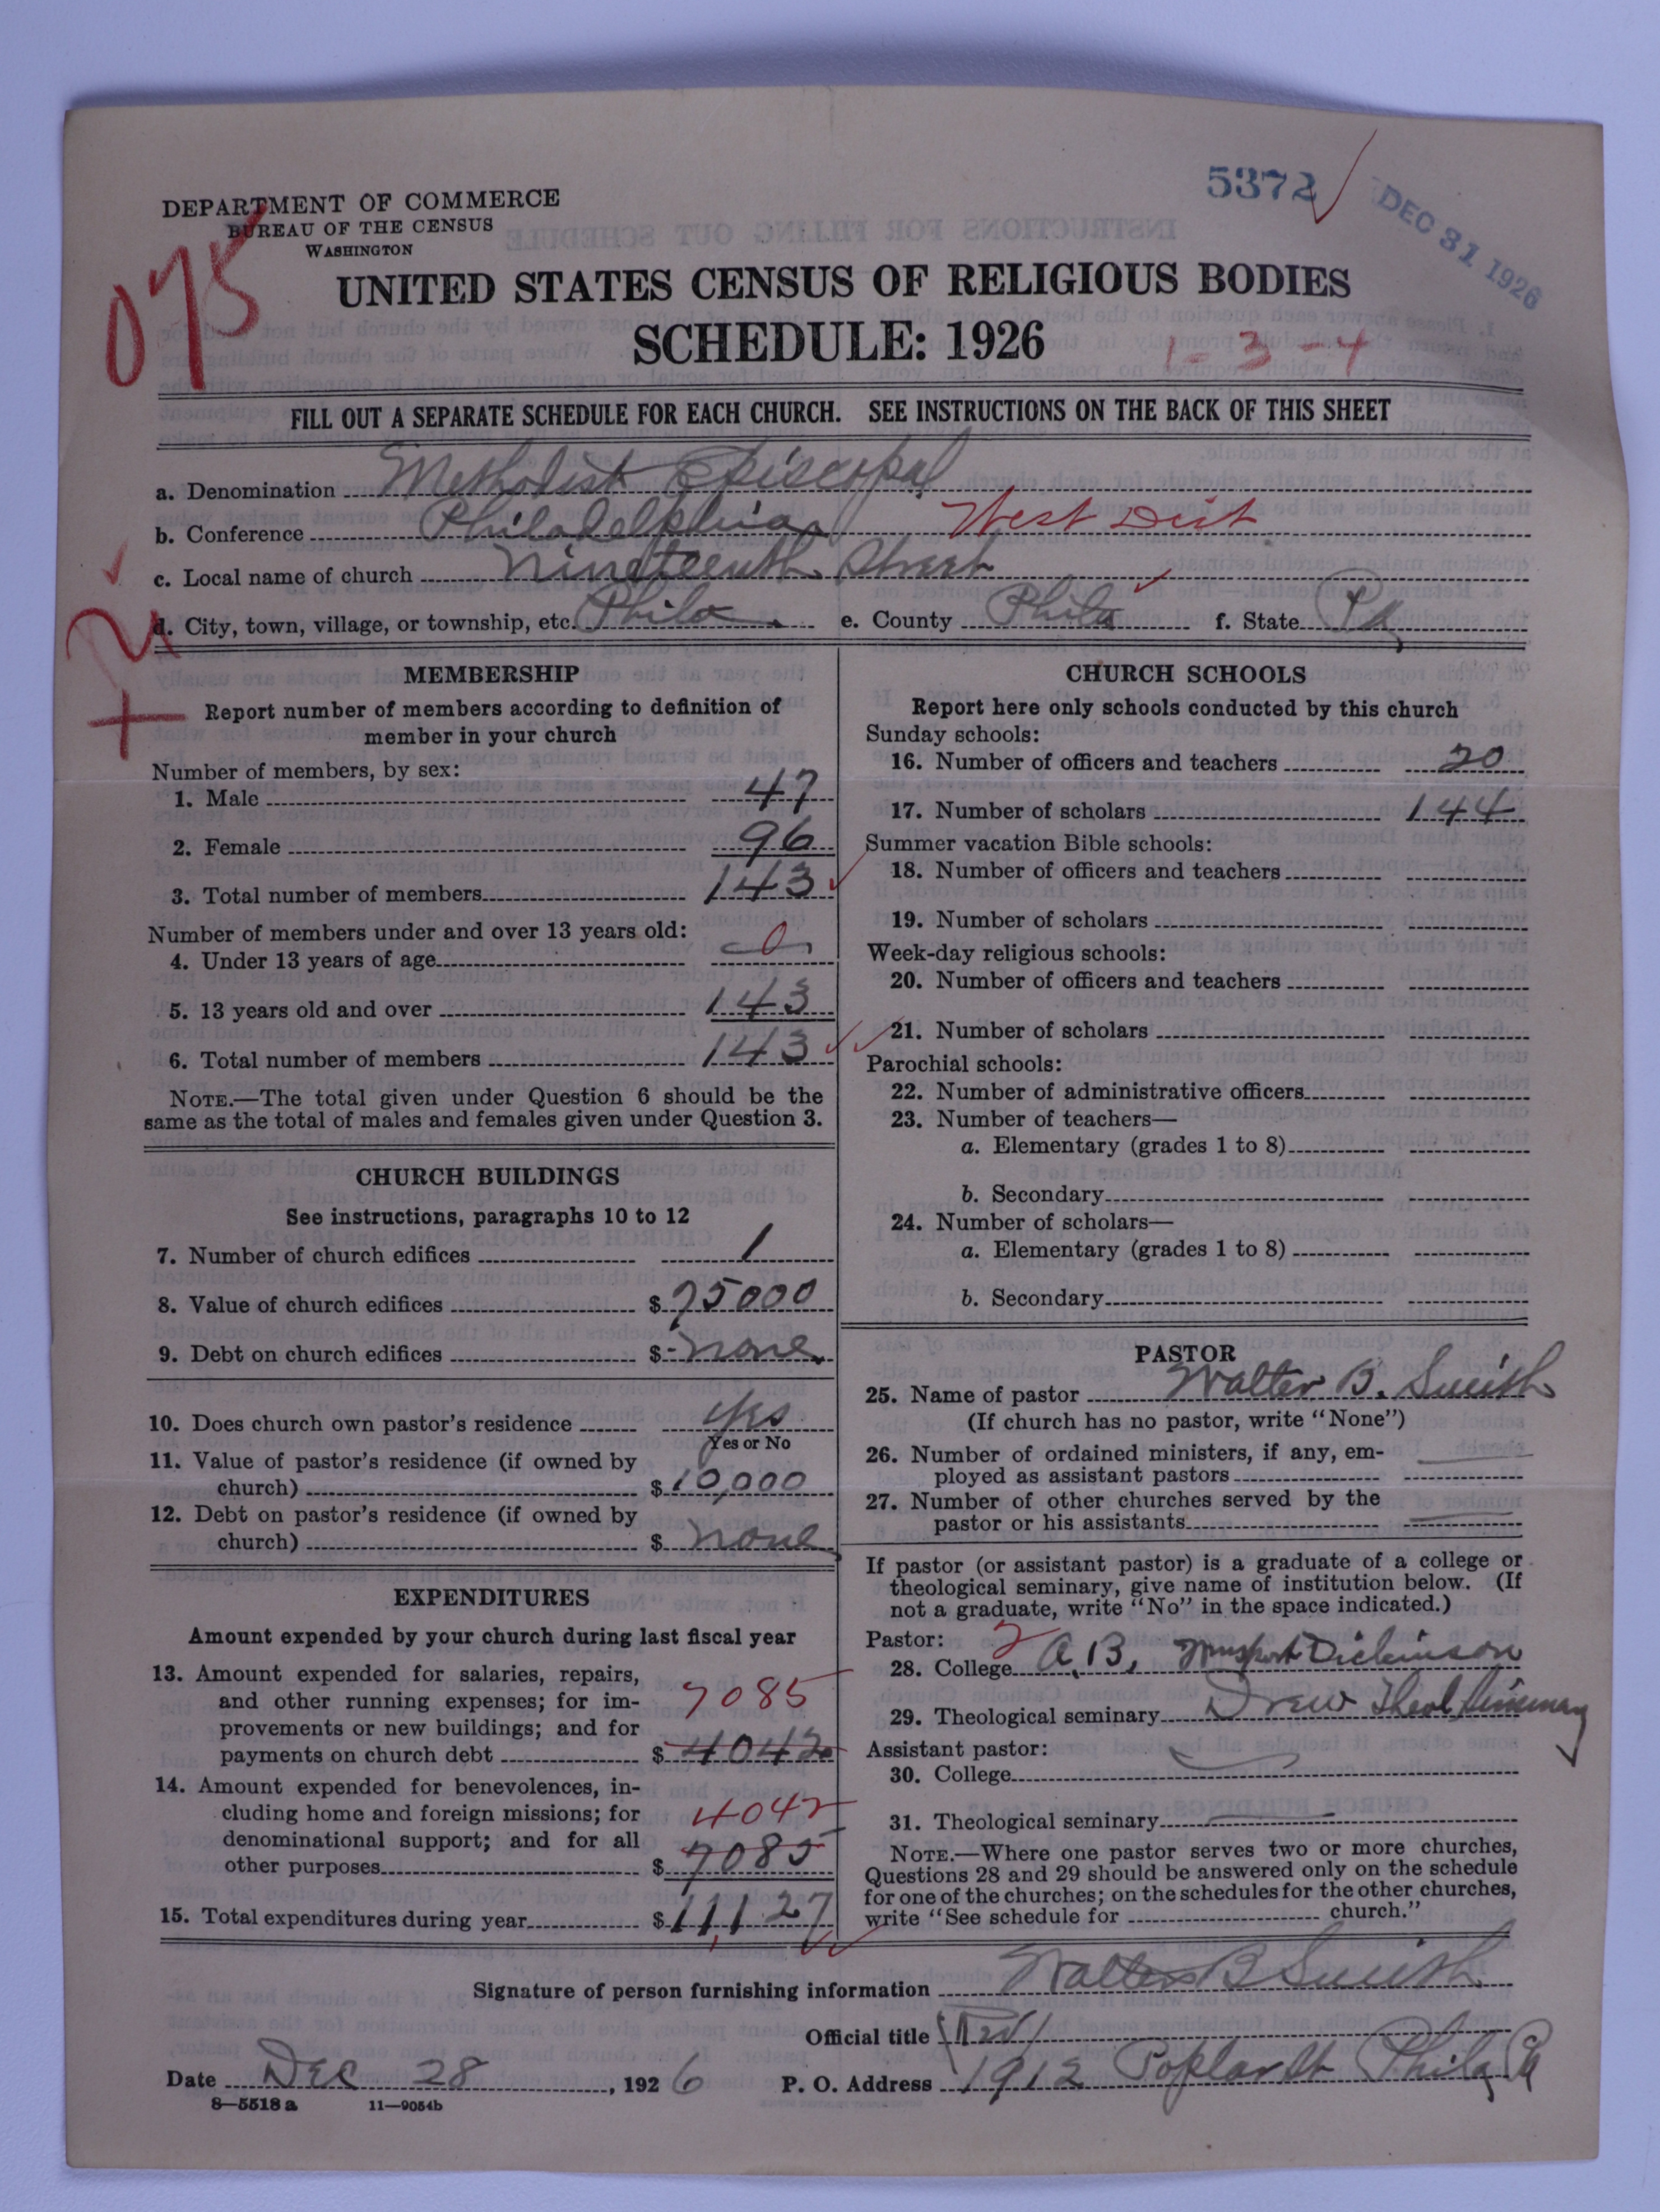 5372
DEC 31 1926
DEPARTMENT OF COMMERCE
BUREAU OF THE CENSUS
WASHINGTON
075
UNITED STATES CENSUS OF RELIGIOUS BODIES
SCHEDULE: 1926
1-3-4
FILL OUT A SEPARATE SCHEDULE FOR EACH CHURCH. SEE INSTRUCTIONS ON THE BACK OF THIS SHEET
a. Denomination Methodist Episcopal
b. Conference Philadelphia West Dist
c. Local name of church Nineteenth Street
d. City, town, village, or township, etc. Phila. e. County Phila f. State Pa
MEMBERSHIP
Report number of members according to definition of
member in your church
Number of members, by sex:
1. Male 47
2. Female 96
3. Total number of members 143
Number of members under and over 13 years old:
4. Under 13 years of age 0
5. 13 years old and over 143
6. Total number of members 143
NOTE.—The total given under Question 6 should be the
same as the total of males and females given under Question 3.
CHURCH BUILDINGS
See instructions, paragraphs 10 to 12
7. Number of church edifices 1
8. Value of church edifices $75000
9. Debt on church edifices $ none
10. Does church own pastor's residence yes
Yes or No
11. Value of pastor's residence (if owned by
church) $10,000
12. Debt on pastor's residence (if owned by
church) $ none
EXPENDITURES
Amount expended by your church during last fiscal year
13. Amount expended for salaries, repairs,
and other running expenses; for im-
7085
provements or new buildings; and for
payments on church debt $ 4042
14. Amount expended for benevolences, in-
cluding home and foreign missions; for
4042
denominational support; and for all
other purposes $ 7085
15. Total expenditures during year $11,127
CHURCH SCHOOLS
Report here only schools conducted by this church
Sunday schools:
16. Number of officers and teachers 20
17. Number of scholars 144
Summer vacation Bible schools:
18. Number of officers and teachers
19. Number of scholars
Week-day religious schools:
20. Number of officers and teachers
21. Number of scholars
Parochial schools:
22. Number of administrative officers
23. Number of teachers—
a. Elementary (grades 1 to 8)
b. Secondary
24. Number of scholars—
a. Elementary (grades 1 to 8)
b. Secondary
PASTOR
25. Name of pastor Walter B. Smith
(If church has no pastor, write "None")
26. Number of ordained ministers, if any, em-
ployed as assistant pastors
27. Number of other churches served by the
pastor or his assistants
If pastor (or assistant pastor) is a graduate of a college or
theological seminary, give name of institution below. (If
not a graduate, write "No" in the space indicated.)
Pastor: 2
28. College A.B. Dickinson
29. Theological seminary Drew Theol Seminary
Assistant pastor:
30. College
31. Theological seminary
NOTE.—Where one pastor serves two or more churches,
Questions 28 and 29 should be answered only on the schedule
for one of the churches; on the schedules for the other churches,
write "See schedule for church."
Signature of person furnishing information Walter B Smith
Official title (Rev)
Date Dec 28, 1926 P. O. Address 1912 Poplar St Phila Pa
8—5518 a 11—9054b